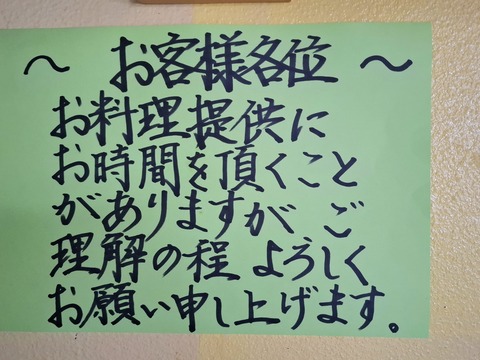 ～ お客様各位 ～
お料理提供に
お時間を頂くこと
がありますが ご
理解の程 よろしく
お願い申し上げます。